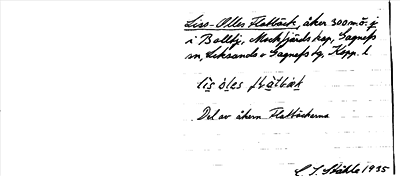 Liss-Olles Flatbäck, åker 300 m ö. j
i Bollfj, Mockfjärds kap, Gagnefs
sn, Leksands o Gagnefs tg, Kopp. l
Del av åkern Flatbäckarna
C. I. Ståhle 1935